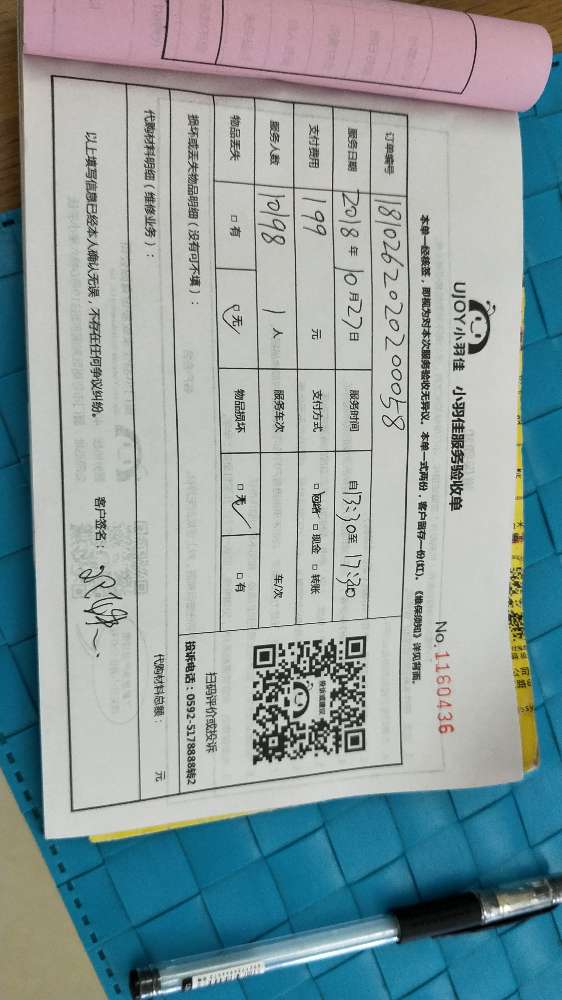 UJOY小羽佳 小羽佳服务验收单
No. 1160436
本单一经核签，即视为对本次服务验收无异议。本单一式两份，客户留存一份(红)。《维保须知》详见背面。
订单编号 18102620202000058
服务日期 2018年10月27日 服务时间 自13:30至17:30
支付费用 199 元 支付方式 □网络 □现金 □转账
服务人数 10198 1人 服务车次 车/次
物品丢失 □有 □无 物品损坏 □无 □有
损坏或丢失物品明细（没有可不填）：
扫码评价或投诉
投诉电话：0592-5178888转2
代购材料明细（维修业务）： 代购材料总额： 元
以上填写信息已经本人确认无误，不存在任何争议纠纷。 客户签名：